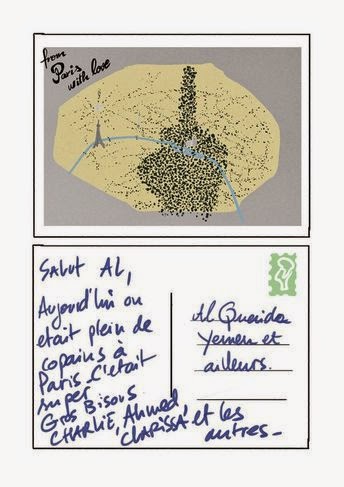 from
Paris
with love
Salut Al,
Aujourd'hui on
etait plein de
copains à
Paris. C'était
super
Gros Bisous
CHARLIE, Ahmed,
CLARISSA et les
autres -
Al Quaida
Yemen et
ailleurs.